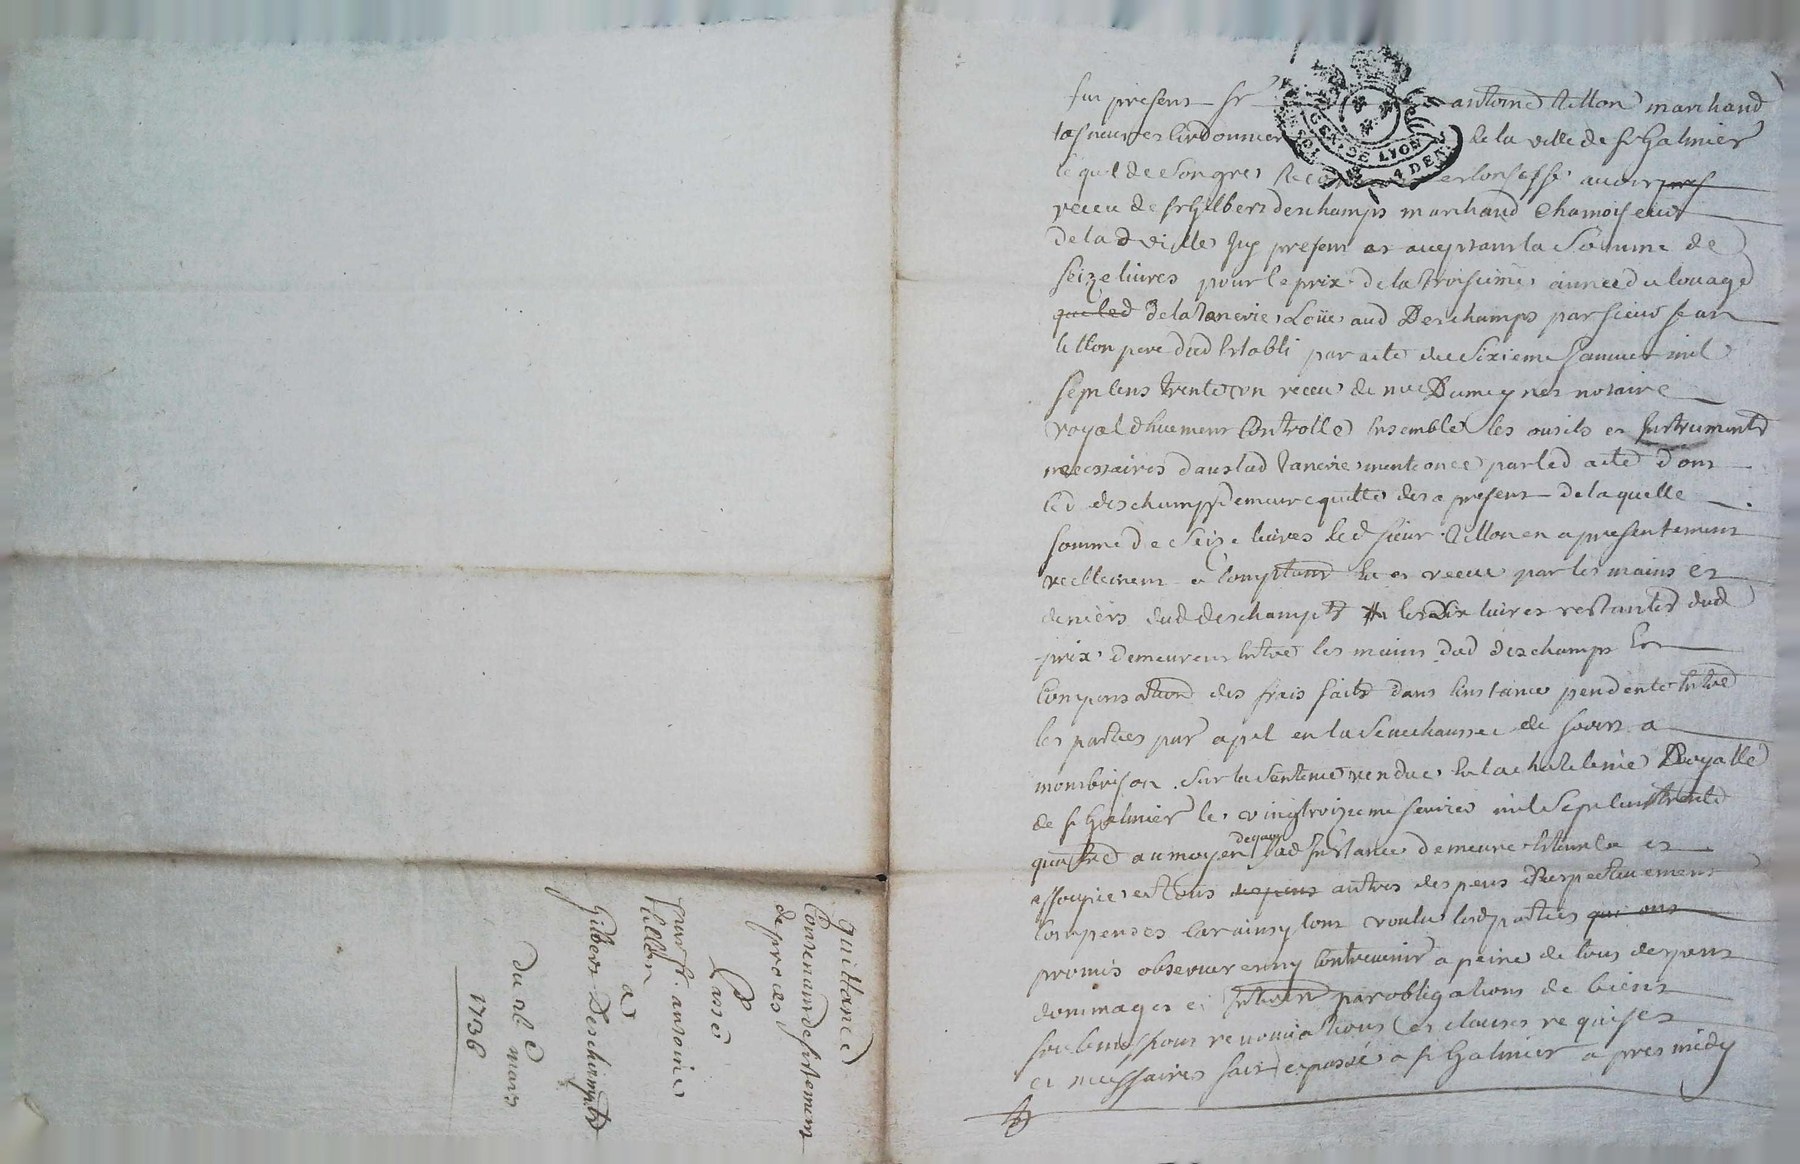 fut present sr antoine tillon marchand
taneur et cordonnier de la ville de st Galmier
lequel de son gre et confesse avoir
receu de sr Gilbert deschamps marchand Chamoiseur
de lad ville Icy present et acceptant la somme de
seize livres pour le prix de la troisieme année du louage
quiled de la tanerie Loüe aud Deschamps par sieur Jean
tillon pere dud Establi par acte du sixieme Janvier mil
sept cens trente un receu de me Dumeynet notaire
royal dhuement Controllé Ensemble les outils et Instruments
necessaires dans lad tanerie mentionée par led acte dont
led deschamps demeure quitte des a present de laquelle
somme de seize livres led sieur tillon en a presentement
reellement et comptant Eu et receu par les mains et
deniers dud deschamps les dix livres restantes dud
prix demeurent Entre les mains dud deschamps En
Compensation des frais faits dans linstance pendente Entre
les parties par apel en la Senechaussee de forest a
montbrison sur la santence rendue En la chatelenie Royalle
de st Galmier le vingtroizieme fevrier mil sept cent trente
quatre au moyen dequoy lad Instance demeure Eteinte et
assoupie et tous depens autres despens Respectivement
Compensés Car ainsy lont voulu lesd parties qui ont
promis observer et ny Contrevenir a peine de tous despens
dommages et Interets par obligations de biens
soubmissions renonciations et clauses requises
et necessaires fait et passé a st Galmier apres midy
quittance
Contenant desistement
de procès
Passé
par sr. antoine
tillon
a
Gilbert Deschamps
du mars
1736
GEN. DE LYON
4 DEN.